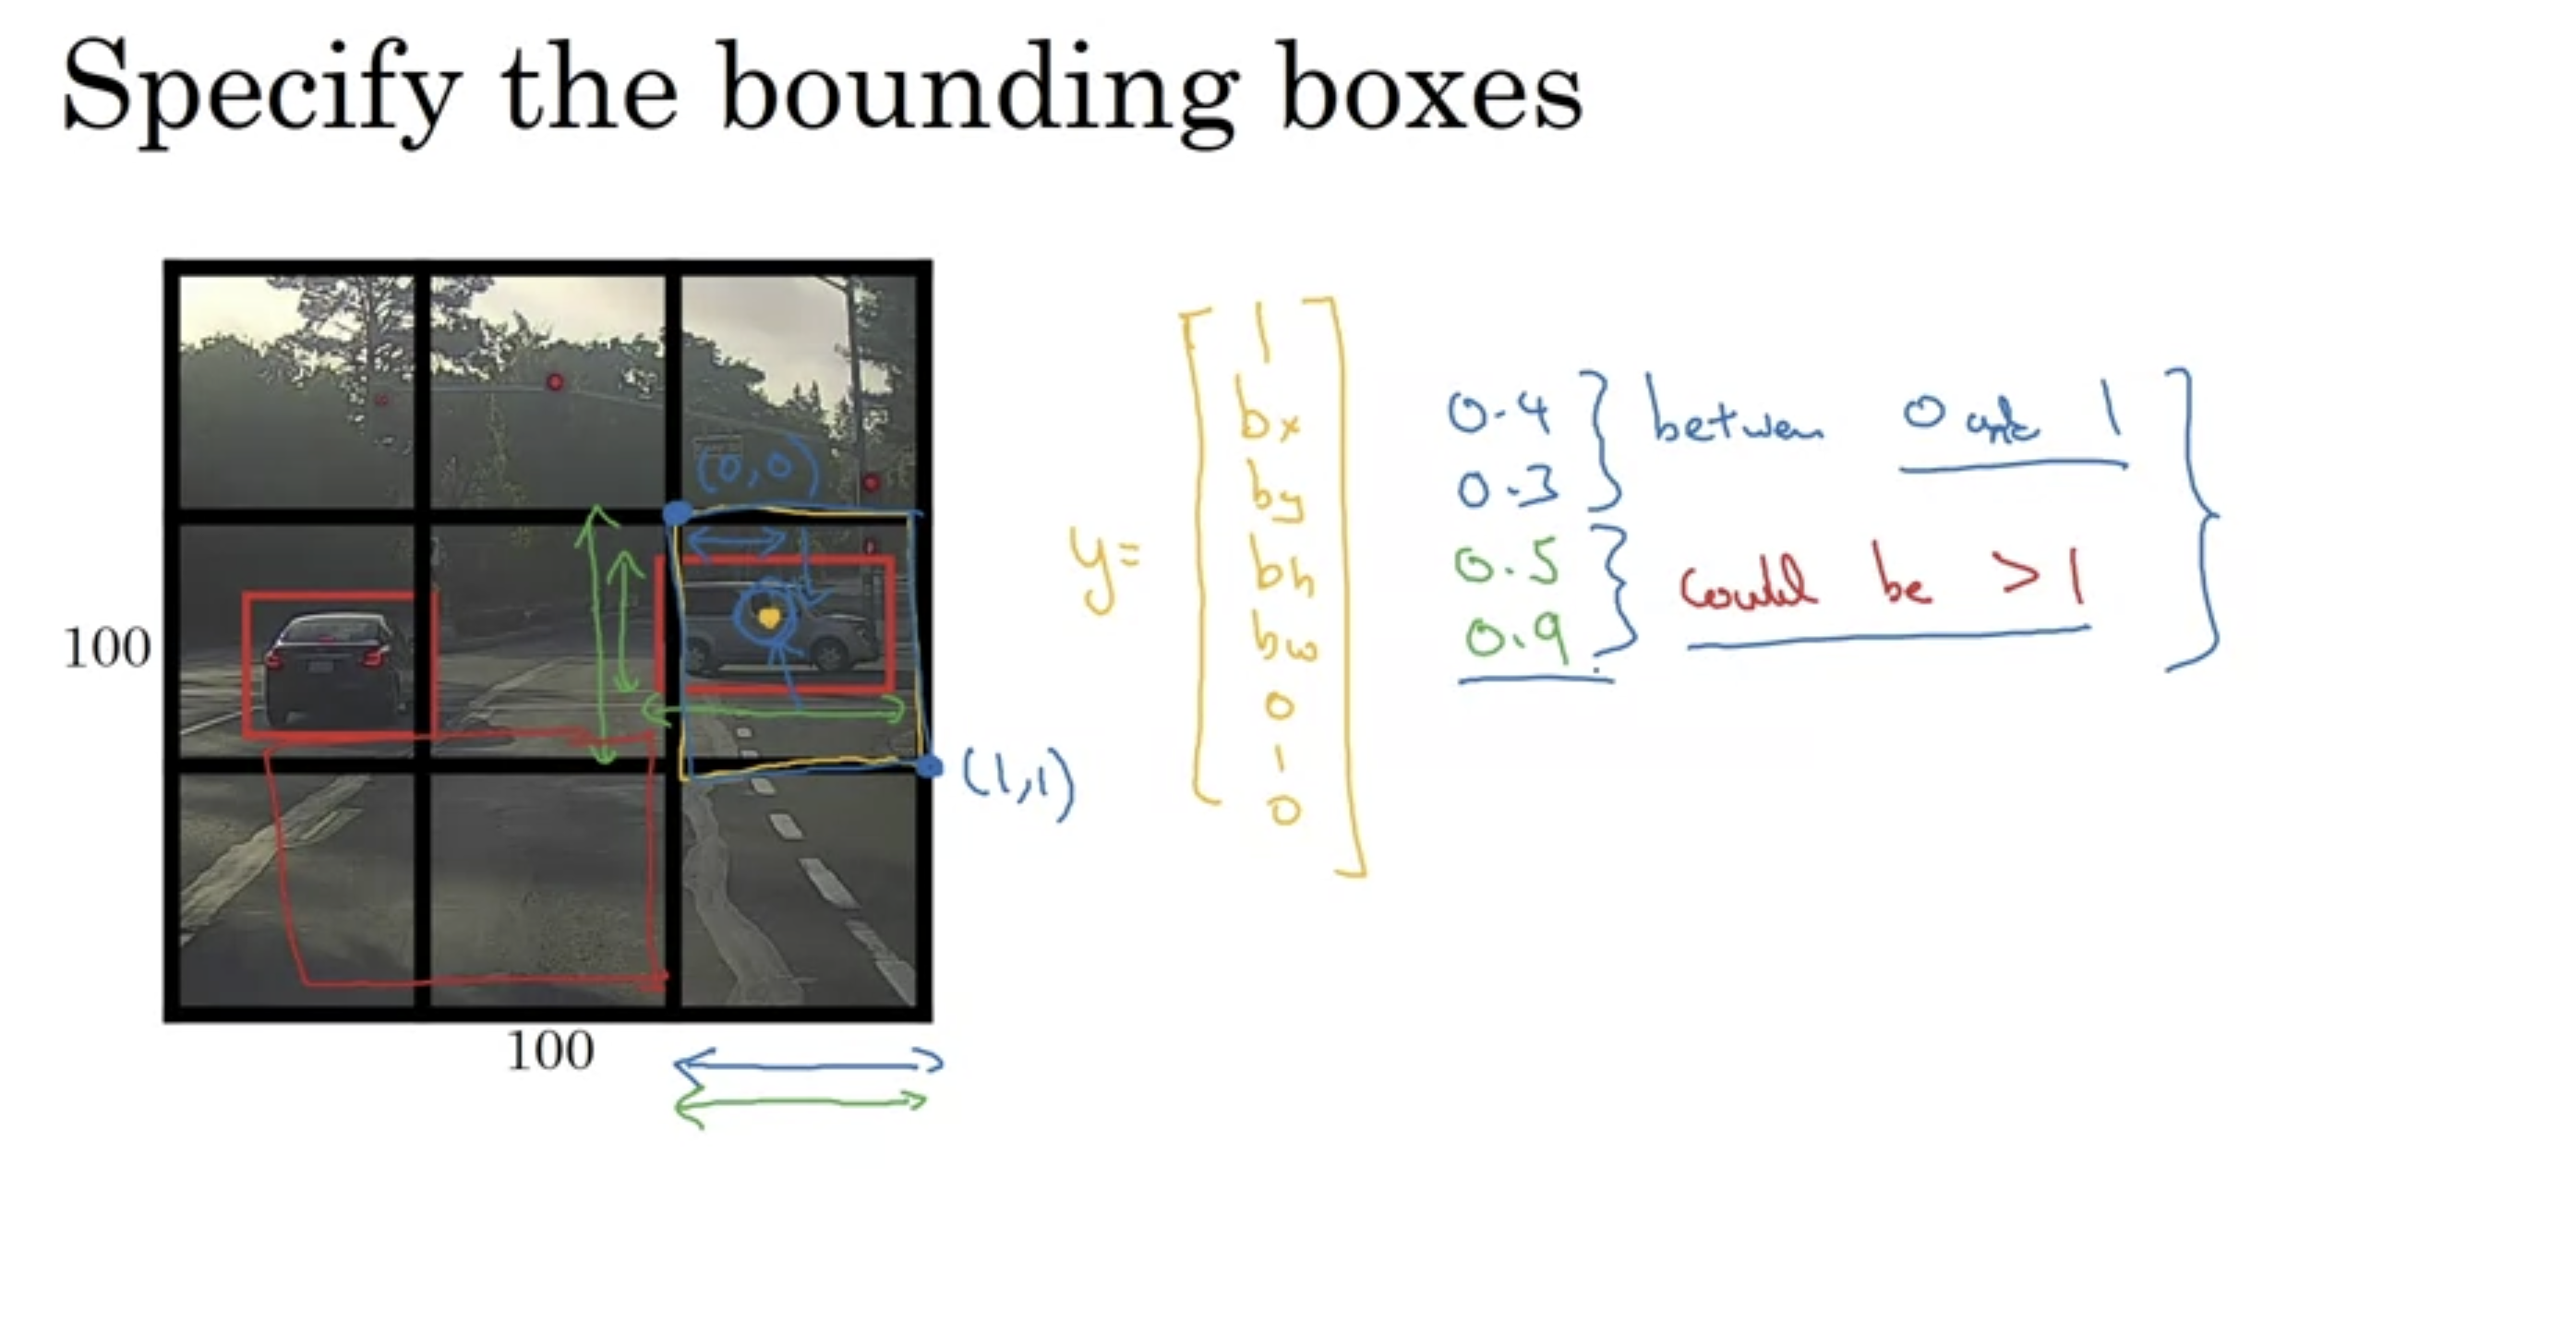 Specify the bounding boxes
(0,0)
100
(1,1)
100
y=
1
bx
by
bh
bw
0
1
0
0.4
0.3
between 0 and 1
0.5
0.9
could be >1